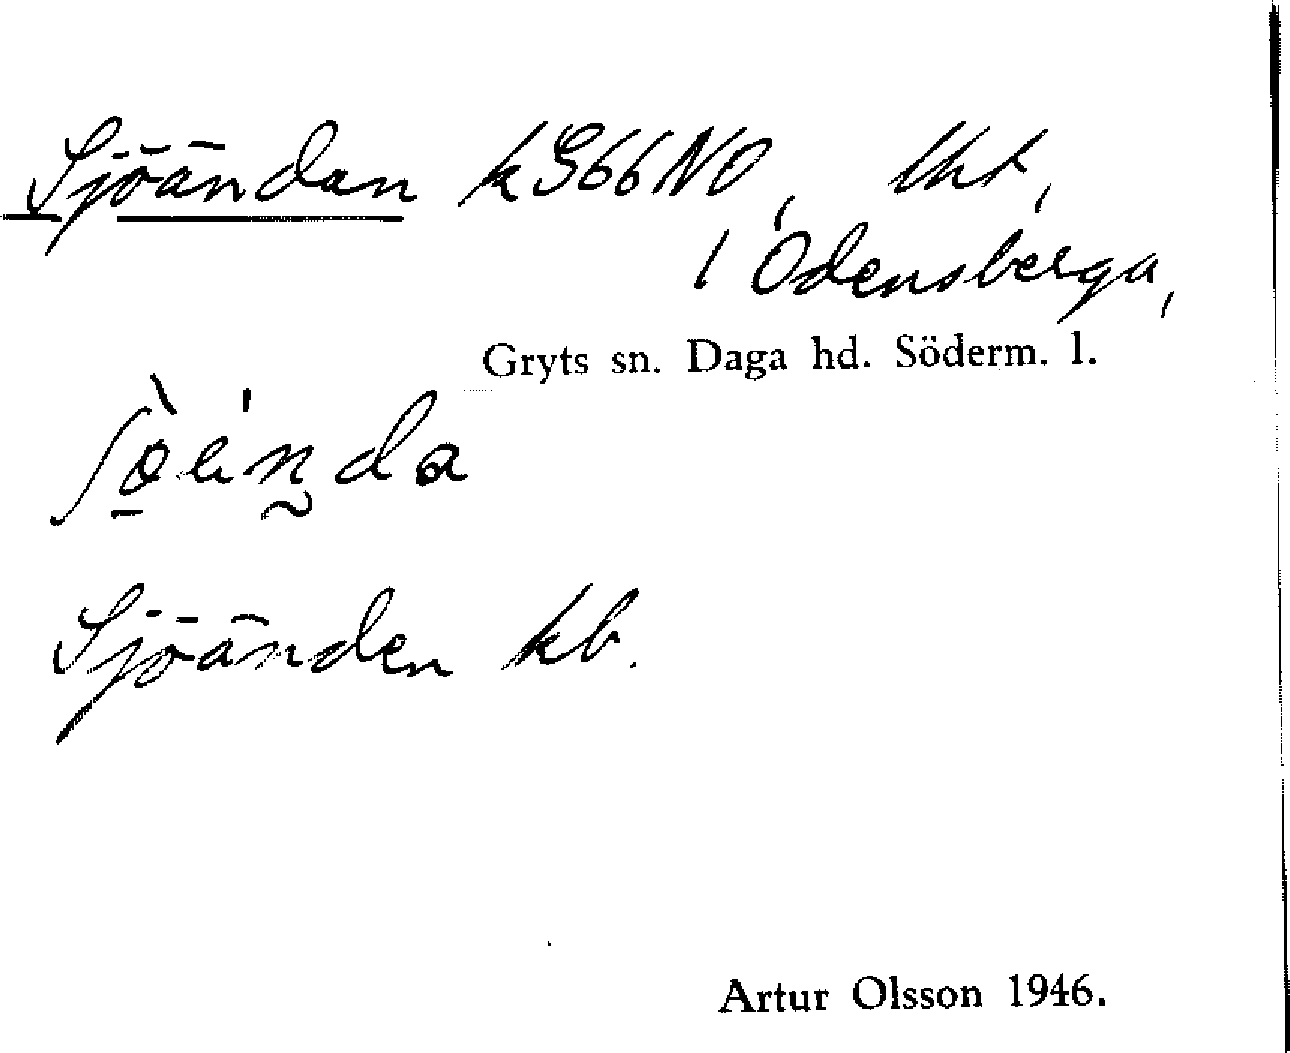 Sjöändan k S66NO, lht,
1 Odensberga,
Gryts sn. Daga hd. Söderm. l.
Sjöänden kb.
Artur Olsson 1946.